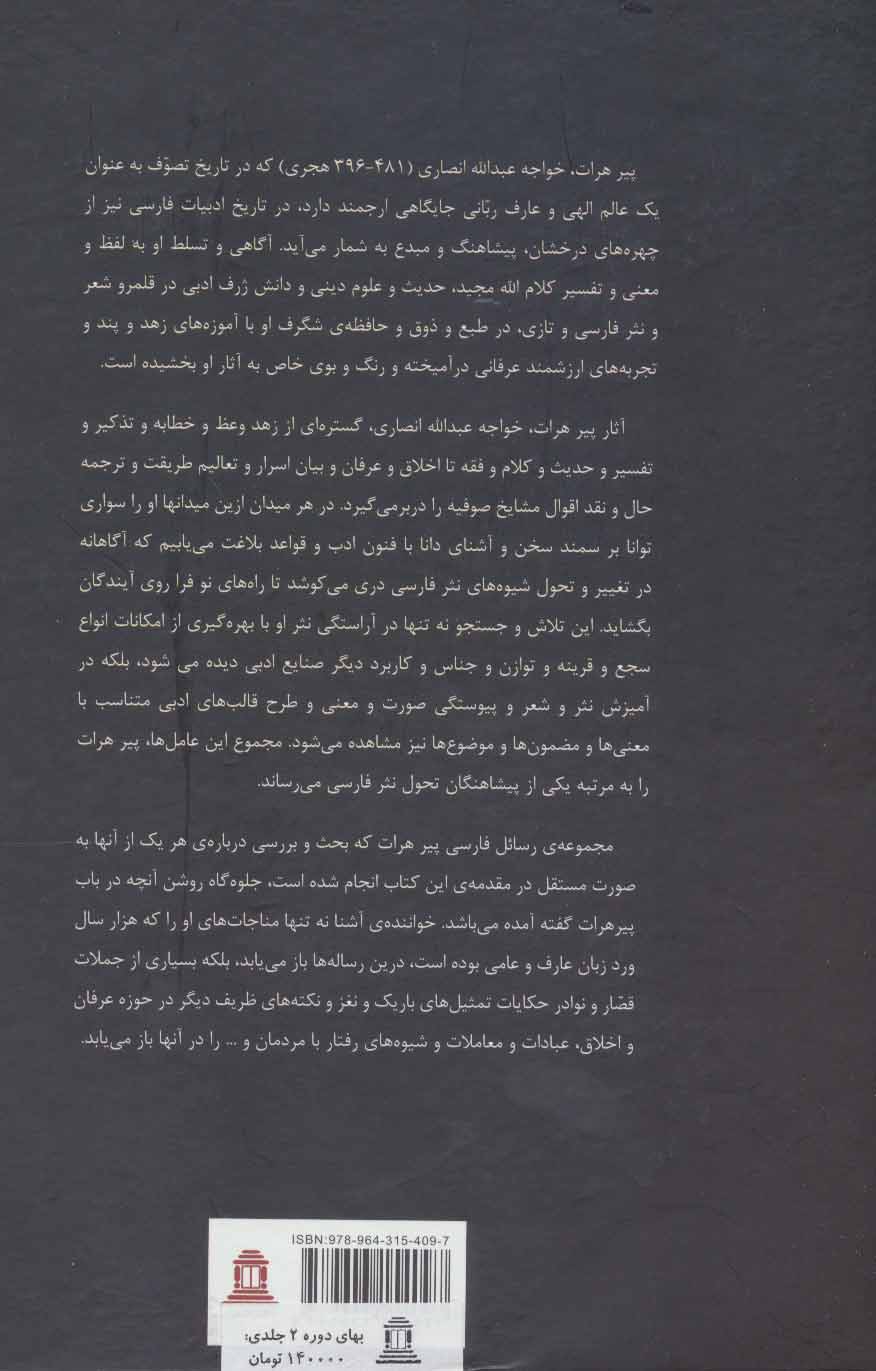 پیر هرات، خواجه عبدالله انصاری (۴۸۱-۳۹۶ هجری) که در تاریخ تصوّف به عنوان
یک عالم الهی و عارف ربّانی جایگاهی ارجمند دارد، در تاریخ ادبیات فارسی نیز از
چهره‌های درخشان، پیشاهنگ و مبدع به شمار می‌آید. آگاهی و تسلط او به لفظ و
معنی و تفسیر کلام الله مجید، حدیث و علوم دینی و دانش ژرف ادبی در قلمرو شعر
و نثر فارسی و تازی، در طبع و ذوق و حافظه‌ی شگرف او با آموزه‌های زهد و پند و
تجربه‌های ارزشمند عرفانی درآمیخته و رنگ و بوی خاص به آثار او بخشیده است.
آثار پیر هرات، خواجه عبدالله انصاری، گستره‌ای از زهد وعظ و خطابه و تذکیر و
تفسیر و حدیث و کلام و فقه تا اخلاق و عرفان و بیان اسرار و تعالیم طریقت و ترجمه
حال و نقد اقوال مشایخ صوفیه را دربرمی‌گیرد. در هر میدان ازین میدانها او را سواری
توانا بر سمند سخن و آشنای دانا با فنون ادب و قواعد بلاغت می‌یابیم که آگاهانه
در تغییر و تحول شیوه‌های نثر فارسی دری می‌کوشد تا راه‌های نو فرا روی آیندگان
بگشاید. این تلاش و جستجو نه تنها در آراستگی نثر او با بهره‌گیری از امکانات انواع
سجع و قرینه و توازن و جناس و کاربرد دیگر صنایع ادبی دیده می شود، بلکه در
آمیزش نثر و شعر و پیوستگی صورت و معنی و طرح قالب‌های ادبی متناسب با
معنی‌ها و مضمون‌ها و موضوع‌ها نیز مشاهده می‌شود. مجموع این عامل‌ها، پیر هرات
را به مرتبه یکی از پیشاهنگان تحول نثر فارسی می‌رساند.
مجموعه‌ی رسائل فارسی پیر هرات که بحث و بررسی درباره‌ی هر یک از آنها به
صورت مستقل در مقدمه‌ی این کتاب انجام شده است، جلوه‌گاه روشن آنچه در باب
پیرهرات گفته آمده می‌باشد. خواننده‌ی آشنا نه تنها مناجات‌های او را که هزار سال
ورد زبان عارف و عامی بوده است، درین رساله‌ها باز می‌یابد، بلکه بسیاری از جملات
قصّار و نوادر حکایات تمثیل‌های باریک و نغز و نکته‌های ظریف دیگر در حوزه عرفان
و اخلاق، عبادات و معاملات و شیوه‌های رفتار با مردمان و ... را در آنها باز می‌یابد.
ISBN:978-964-315-409-7
بهای دوره ۲ جلدی:
۱۴۰۰۰۰ تومان